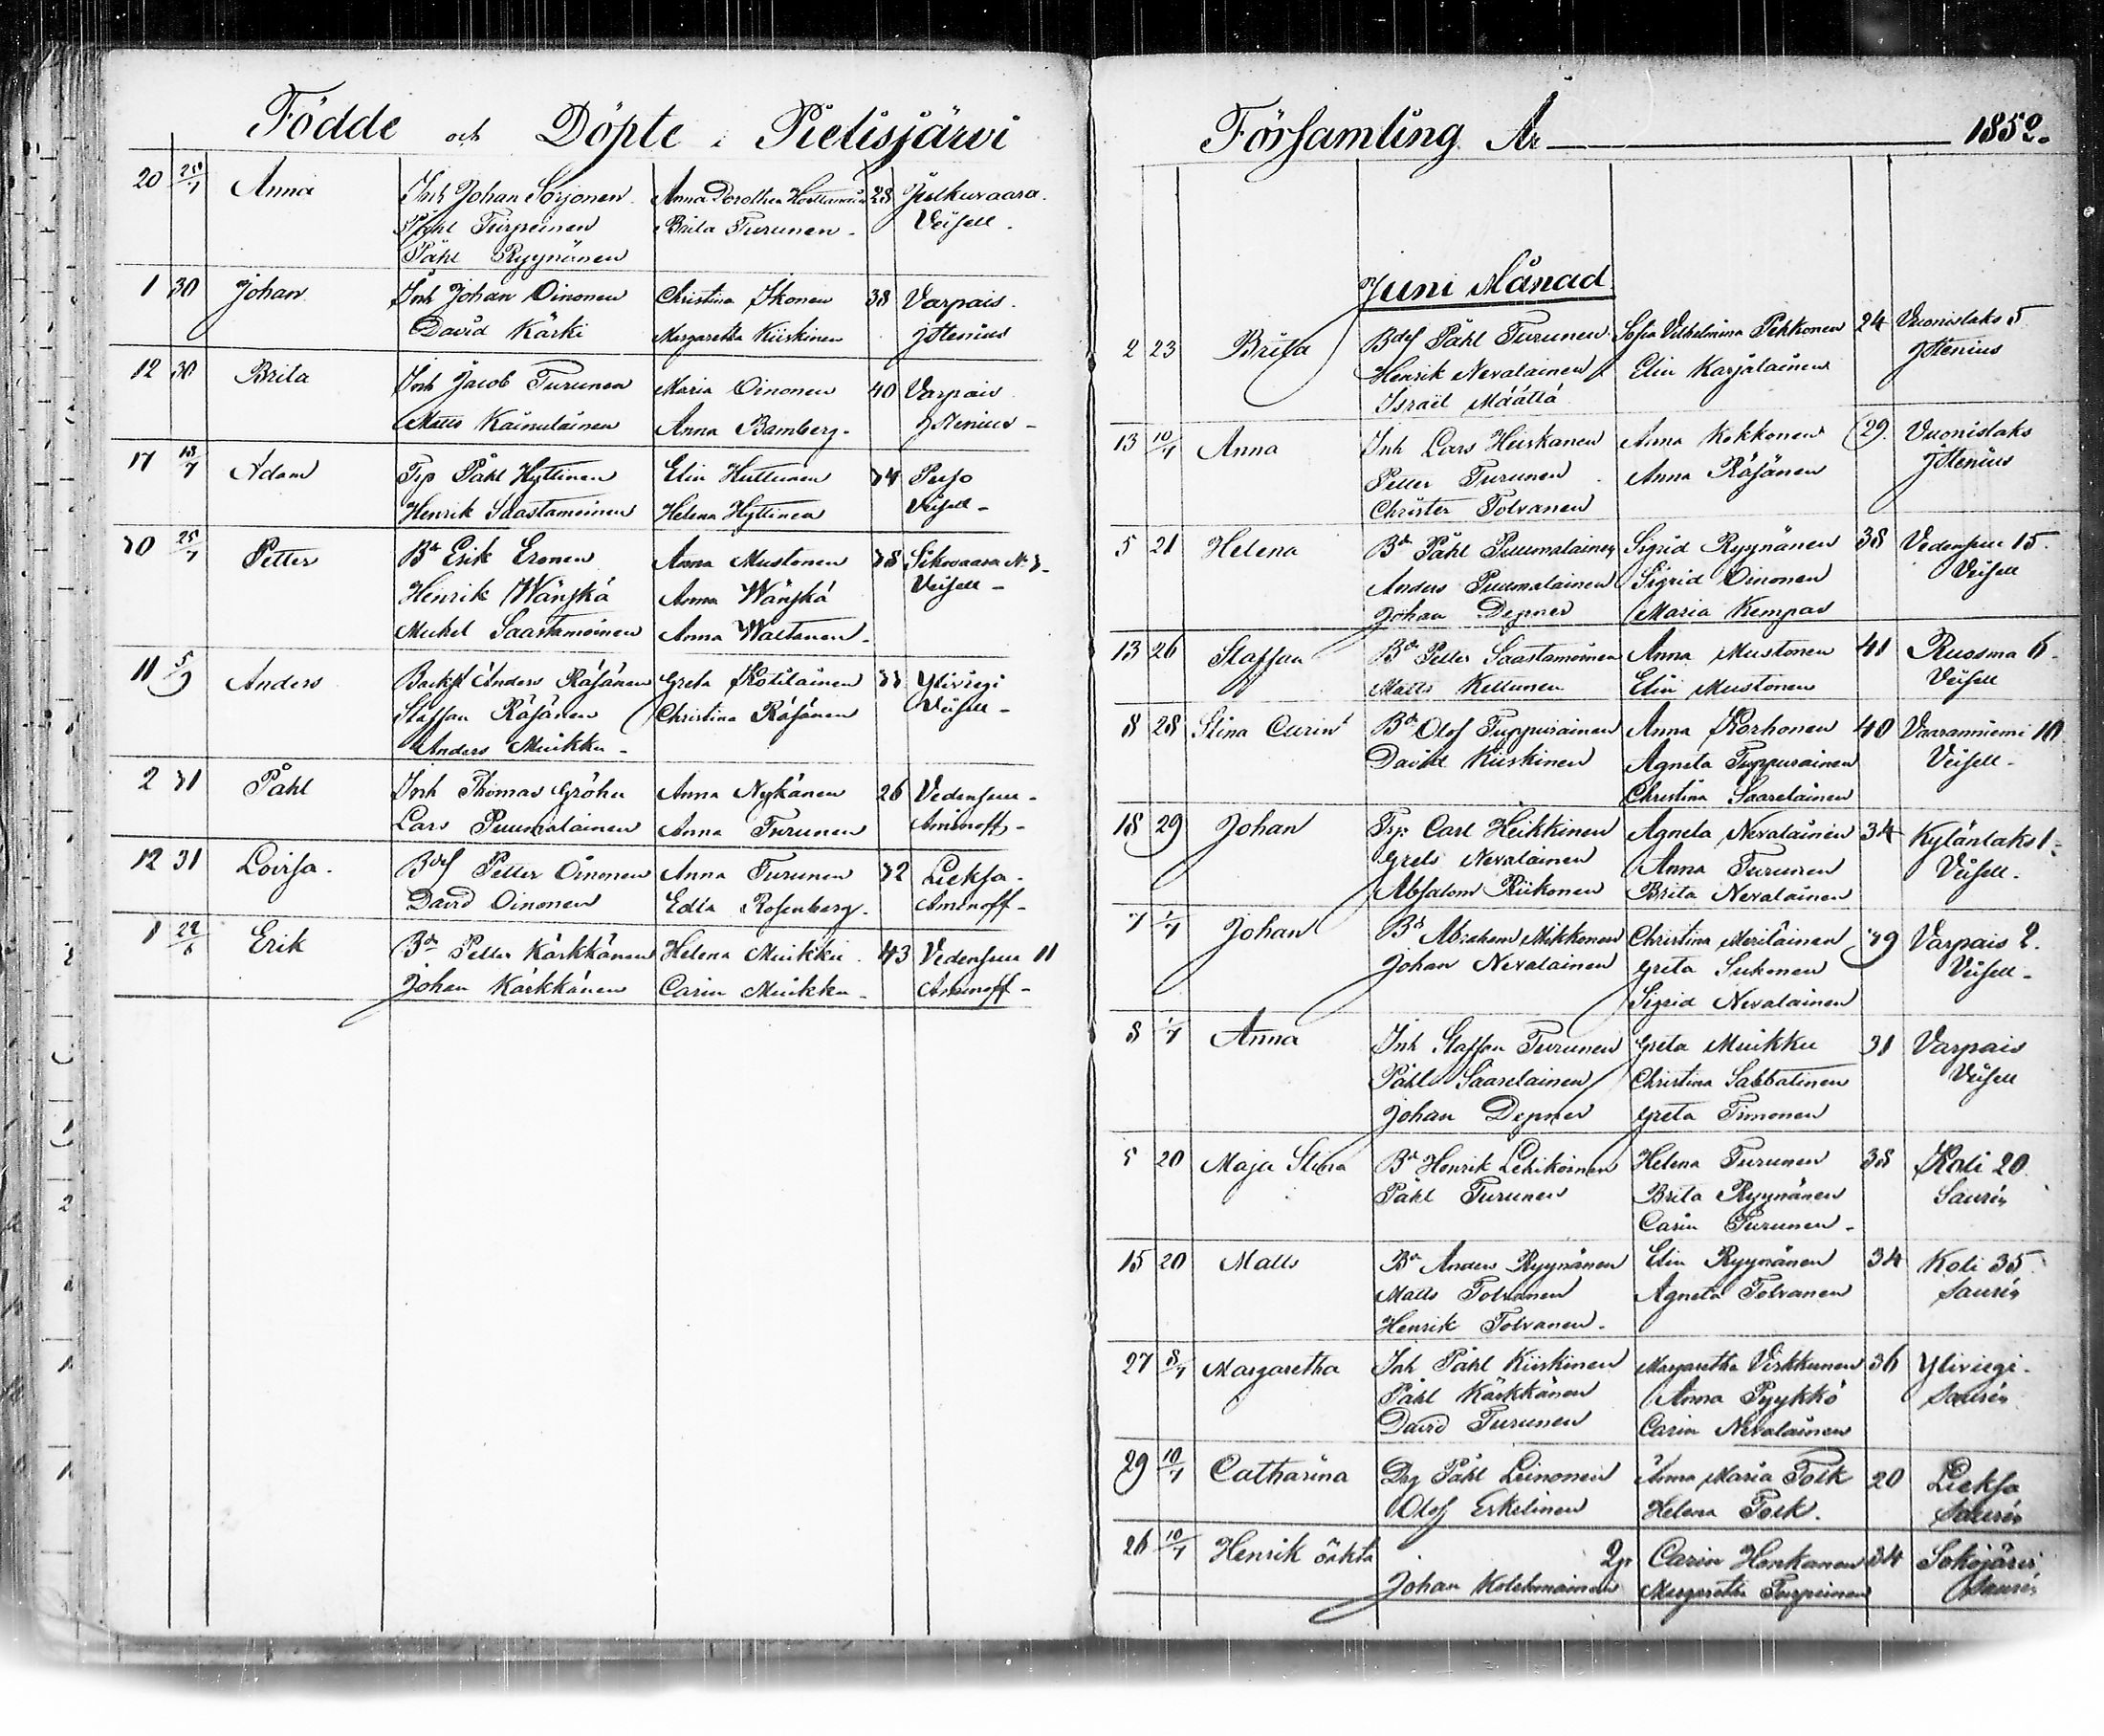 Födde och Döpte i Pielisjärvi
20 20/7 Anna Inh Johan Sorjonen Anna Dorothea 28 Julkuvaara
Påhl Turpeinen Brita Turunen Veisell
Påhl Ryynönen
1 30 Johan Inh Johan Oinonen Christina Ikonen 38 Varpais
David Kärki Margaretha Kiiskinen JStenius
12 30 Brita Inh Jacob Turunen Maria Oinonen 40 Varpais
Matts Kainulainen Anna Bamberg JStenius
17 18/7 Adam Trp Påhl Hyttinen Elin Huttunen 34 Purjo
Henrik Saastamoinen Helena Hyttinen Veisell
30 25/7 Petter Bd Erik Eronen Anna Mustonen 38 Sikovaara N 3
Henrik Wänskä Anna Wänskä Veisell
Mickel Saastamoinen Anna Wattanen
11 5/9 Anders Anders Räsänen Greta Kotilainen 33 Yliviegi
Staffan Räsänen Christina Räsänen Veisell
Anders Muikku
2 31 Påhl Inh Thomas Gröhn Anna Nykänen 26 Vedensuu
Lars Puumalainen Anna Turunen Aminoff
12 31 Lovisa Bdsf Petter Oinonen Anna Turunen 32 Lieksa
David Oinonen Edla Rosenberg Aminoff
1 22/6 Erik Bd Petter Kärkkänen Helena Muikku 43 Vedensuu 11
Johan Kärkkänen Carin Muikku Aminoff
Församling År 1850
Juni Månad
2 23 Brita Bdsf Påhl Turunen Sofia Vilhelmina Pekkonen 24 Vuonislaks 5
Henrik Nevalainen Elin Karjalainen JStenius
Israel Määttä
13 10/7 Anna Inh Lars Heiskanen Anna Kokkonen 29 Vuonislaks
Petter Turunen Anna Räsänen JStenius
Christer Tolvanen
5 21 Helena Bd Påhl Puumalainen Sigrid Ryynänen 38 Vedensuu 15
Anders Puumalainen Sigrid Oinonen Veisell
Johan Depner Maria Kempas
13 26 Staffan Bd Petter Saastamoinen Anna Mustonen 41 Ruosma 6
Matts Kettunen Elin Mustonen Veisell
8 28 Stina Carin Bd Olof Tuppurainen Anna Korhonen 40 Vaaranniemi 10
David Kiiskinen Agneta Tuppurainen Veisell
Christina Saarelainen
18 29 Johan Trp Carl Heikkinen Agneta Nevalainen 34 Kylänlaks 1
Grels Nevalainen Anna Turunen Veisell
Absalom Riikonen Brita Nevalainen
7 1/7 Johan Bd Abraham Mikkonen Christina Meriläinen 39 Varpais 2
Johan Nevalainen Greta Siikonen Veisell
Sigrid Nevalainen
8 1/7 Anna Inh Staffan Turunen Greta Muikku 31 Varpais
Påhl Saarelainen Christina Sabbatinen Veisell
Johan Depner Greta Timonen
5 20 Maja Stina Bd Henrik Lehikoinen Helena Turunen 38 Koli 20
Påhl Turunen Brita Ryynänen Saurén
Carin Turunen
15 20 Matts Bd Anders Ryynänen Elin Ryynänen 34 Koli 35
Matts Tolvanen Agneta Tolvanen Saurén
Henrik Tolvanen
27 8/7 Margaretha Inh Påhl Kiiskinen Margaretha Virkkunen 36 Yliviegi
Påhl Kärkkänen Anna Pyykkö Saurén
David Turunen Carin Nevalainen
29 10/7 Catharina Drg Påhl Leinonen Anna Maria Tolk 20 Lieksa
Olof Eskelinen Helena Tolk Saurén
26 10/7 Henrik oäkta Qp Carin Honkanen 34 Sokojärvi
Johan Kolehmainen Margaretha Turpeinen Saurén